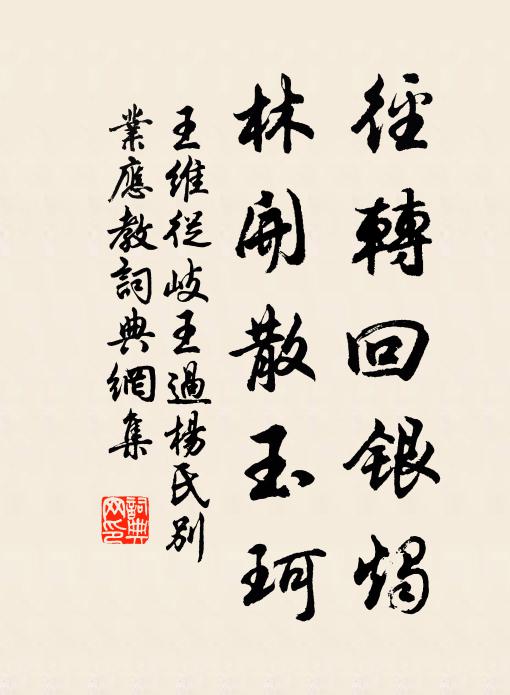 徑轉回銀燭
林開散玉珂
王維從岐王過楊氏別
業應教詞典網集
詞典
网印